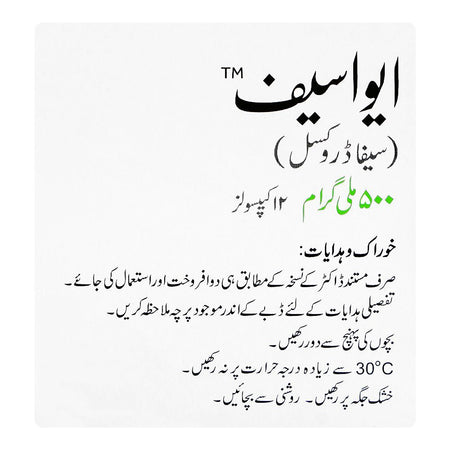 ایواسیف™
(سیفاڈروکسل)
۵۰۰ ملی گرام ۱۲ کیپسولز
خوراک و ہدایات:
صرف مستند ڈاکٹر کے نسخہ کے مطابق ہی دوا فروخت اور استعمال کی جائے۔
تفصیلی ہدایات کے لئے ڈبے کے اندر موجود پرچہ ملاحظہ کریں۔
بچوں کی پہنچ سے دور رکھیں۔
30°C سے زیادہ درجہ حرارت پر نہ رکھیں۔
خشک جگہ پر رکھیں۔ روشنی سے بچائیں۔